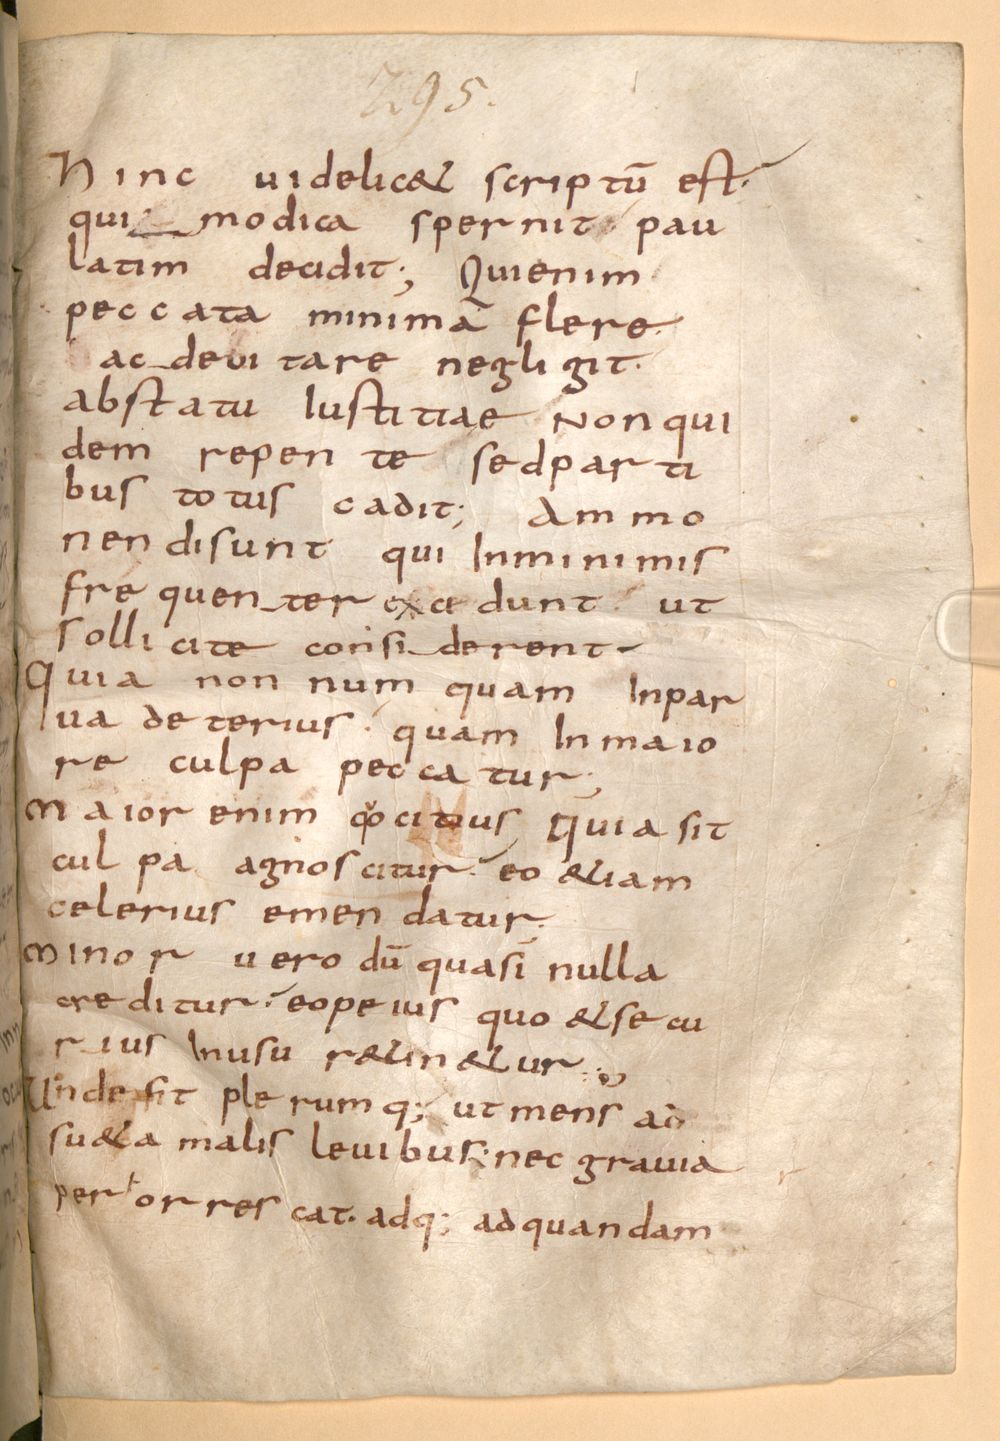 295.
Hinc uidelic& scriptū est.
qui modica spernit pau
latim decidit; Quienim
peccata minima flere
ac deuitare negligit.
abstatu Iustitiae Nonqui
dem repente sedparti
bus totus cadit; Ammo
nendisunt qui Inminimis
frequenter excidunt ut
sollicite considerent.
Quia non numquam Inpar
ua deterius. quam Inmaio
re culpa peccatur;
Maior enim qo citius, Quia sit
culpa agnoscitur. eo &iam
celerius emendatur.
Minor uero dū quasi nulla
creditur. eopeius quo &secu
rius Inusu r&in&ur;
Unde fit plerumq; ut mens ad
su&a malis leuibus. nec grauia
pertorrescat. adq; adquandam